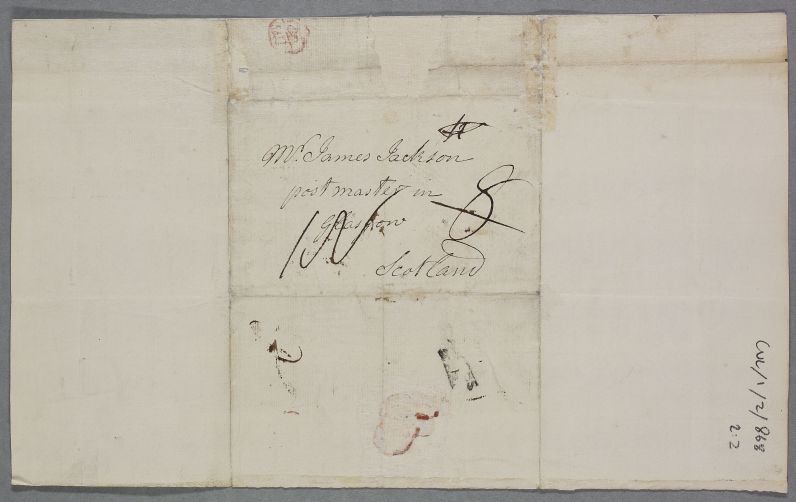 Mr. James Jackson
postmaster in
Glasgow
Scotland
8
CUL/1/2/868
2:2